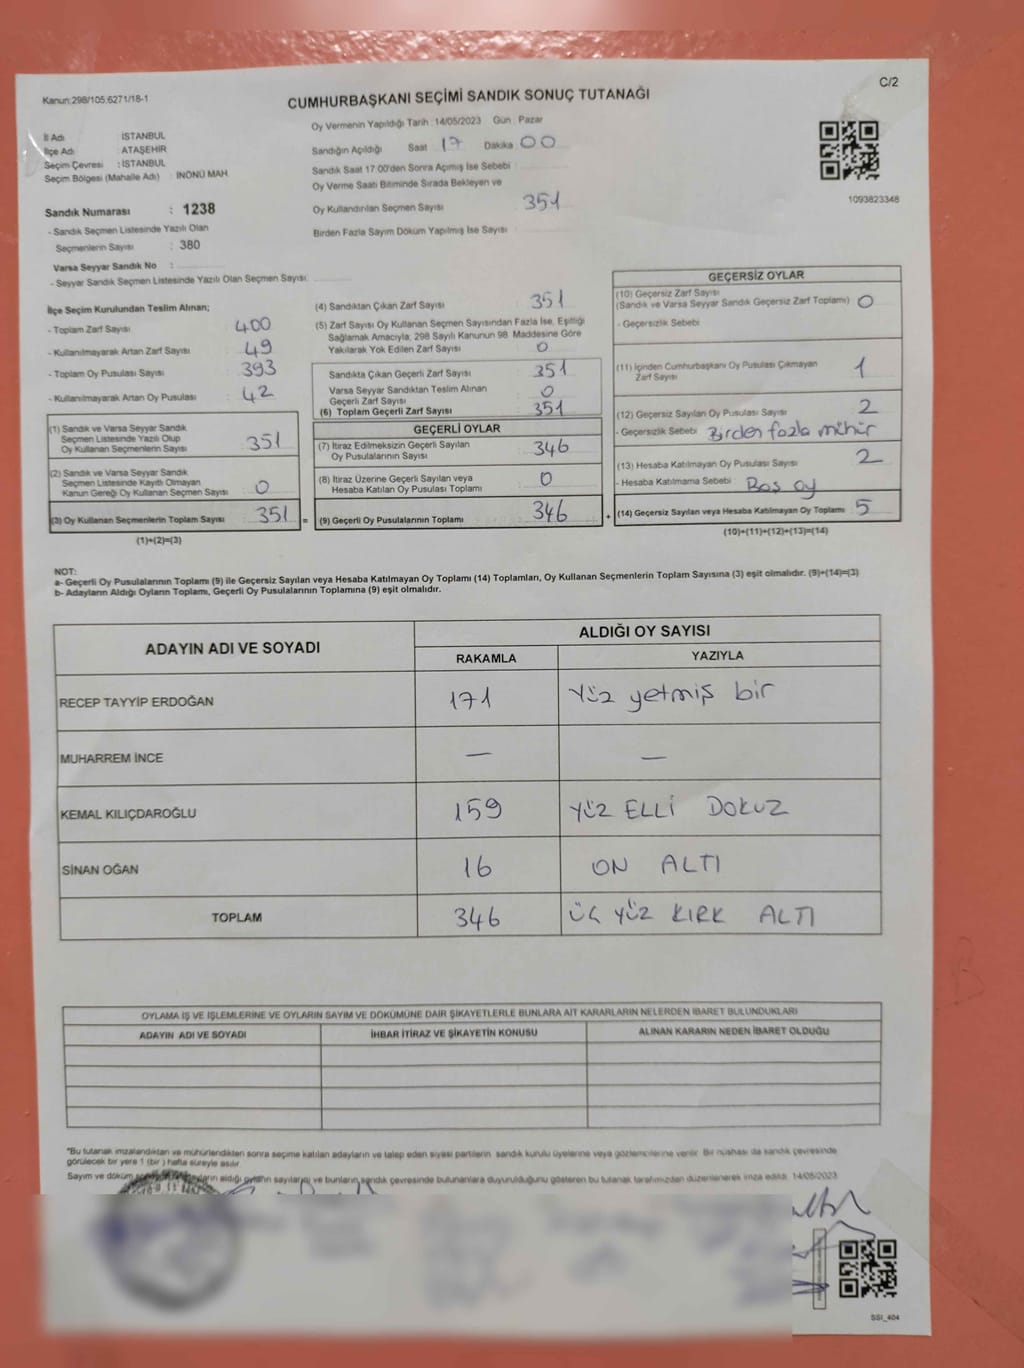 C/2
Kanun:298/105.6271/18-1
CUMHURBAŞKANI SEÇİMİ SANDIK SONUÇ TUTANAĞI
İl Adı : İSTANBUL
İlçe Adı : ATAŞEHİR
Seçim Çevresi : İSTANBUL
Seçim Bölgesi (Mahalle Adı) : İNÖNÜ MAH.
Oy Vermenin Yapıldığı Tarih 14/05/2023 Gün : Pazar
Sandığın Açıldığı Saat 17 Dakika 00
Sandık Saat 17:00'den Sonra Açımış İse Sebebi :
Oy Verme Saati Bitiminde Sırada Bekleyen ve
Oy Kullandırılan Seçmen Sayısı : 351
Birden Fazla Sayım Döküm Yapılmış İse Sayısı :
1093823348
Sandık Numarası : 1238
- Sandık Seçmen Listesinde Yazılı Olan
Seçmenlerin Sayısı : 380
Varsa Seyyar Sandık No :
- Seyyar Sandık Seçmen Listesinde Yazılı Olan Seçmen Sayısı:
İlçe Seçim Kurulundan Teslim Alınan;
- Toplam Zarf Sayısı : 400
- Kullanılmayarak Artan Zarf Sayısı : 49
- Toplam Oy Pusulası Sayısı : 393
- Kullanılmayarak Artan Oy Pusulası : 42
(1) Sandık ve Varsa Seyyar Sandık
Seçmen Listesinde Yazılı Olup
Oy Kullanan Seçmenlerin Sayısı : 351
(2) Sandık ve Varsa Seyyar Sandık
Seçmen Listesinde Kayıtlı Olmayan
Kanun Gereği Oy Kullanan Seçmen Sayısı : 0
(3) Oy Kullanan Seçmenlerin Toplam Sayısı : 351 =
(1)+(2)=(3)
(4) Sandıktan Çıkan Zarf Sayısı : 351
(5) Zarf Sayısı Oy Kullanan Seçmen Sayısından Fazla İse, Eşitliği
Sağlamak Amacıyla, 298 Sayılı Kanunun 98. Maddesine Göre
Yakılarak Yok Edilen Zarf Sayısı : 0
Sandıkta Çıkan Geçerli Zarf Sayısı : 351
Varsa Seyyar Sandıktan Teslim Alınan
Geçerli Zarf Sayısı : 0
(6) Toplam Geçerli Zarf Sayısı : 351
GEÇERLİ OYLAR
(7) İtiraz Edilmeksizin Geçerli Sayılan
Oy Pusulalarının Sayısı : 346
(8) İtiraz Üzerine Geçerli Sayılan veya
Hesaba Katılan Oy Pusulası Toplamı : 0
(9) Geçerli Oy Pusulalarının Toplamı : 346 +
GEÇERSİZ OYLAR
(10) Geçersiz Zarf Sayısı
(Sandık ve Varsa Seyyar Sandık Geçersiz Zarf Toplamı) : 0
- Geçersizlik Sebebi :
(11) İçinden Cumhurbaşkanı Oy Pusulası Çıkmayan
Zarf Sayısı : 1
(12) Geçersiz Sayılan Oy Pusulası Sayısı : 2
- Geçersizlik Sebebi : Birden fazla mühür
(13) Hesaba Katılmayan Oy Pusulası Sayısı : 2
- Hesaba Katılmama Sebebi : Boş oy
(14) Geçersiz Sayılan veya Hesaba Katılmayan Oy Toplamı : 5
(10)+(11)+(12)+(13)=(14)
NOT:
a- Geçerli Oy Pusulalarının Toplamı (9) ile Geçersiz Sayılan veya Hesaba Katılmayan Oy Toplamı (14) Toplamları, Oy Kullanan Seçmenlerin Toplam Sayısına (3) eşit olmalıdır. (9)+(14)=(3)
b- Adayların Aldığı Oyların Toplamı, Geçerli Oy Pusulalarının Toplamına (9) eşit olmalıdır.
ADAYIN ADI VE SOYADI
ALDIĞI OY SAYISI
RAKAMLA YAZIYLA
RECEP TAYYİP ERDOĞAN 171 Yüz yetmiş bir
MUHARREM İNCE — —
KEMAL KILIÇDAROĞLU 159 YÜZ ELLİ DOKUZ
SİNAN OĞAN 16 ON ALTI
TOPLAM 346 ÜÇ YÜZ KIRK ALTI
OYLAMA İŞ VE İŞLEMLERİNE VE OYLARIN SAYIM VE DÖKÜMÜNE DAİR ŞİKAYETLERLE BUNLARA AİT KARARLARIN NELERDEN İBARET BULUNDUKLARI
ADAYIN ADI VE SOYADI İHBAR İTİRAZ VE ŞİKAYETİN KONUSU ALINAN KARARIN NEDEN İBARET OLDUĞU
*Bu tutanak imzalandıktan ve mühürlendikten sonra seçime katılan adayların ve talep eden siyasi partilerin sandık kurulu üyelerine veya gözlemcilerine verilir. Bir nüshası da sandık çevresinde
görülecek bir yere 1 (bir) hafta süreyle asılır.
Sayım ve döküm aldığı oyların sayılarını ve bunların sandık çevresinde bulunanlara duyurulduğunu gösteren bu tutanak tarafımızdan düzenlenerek imza edildi. 14/05/2023
SSI_404